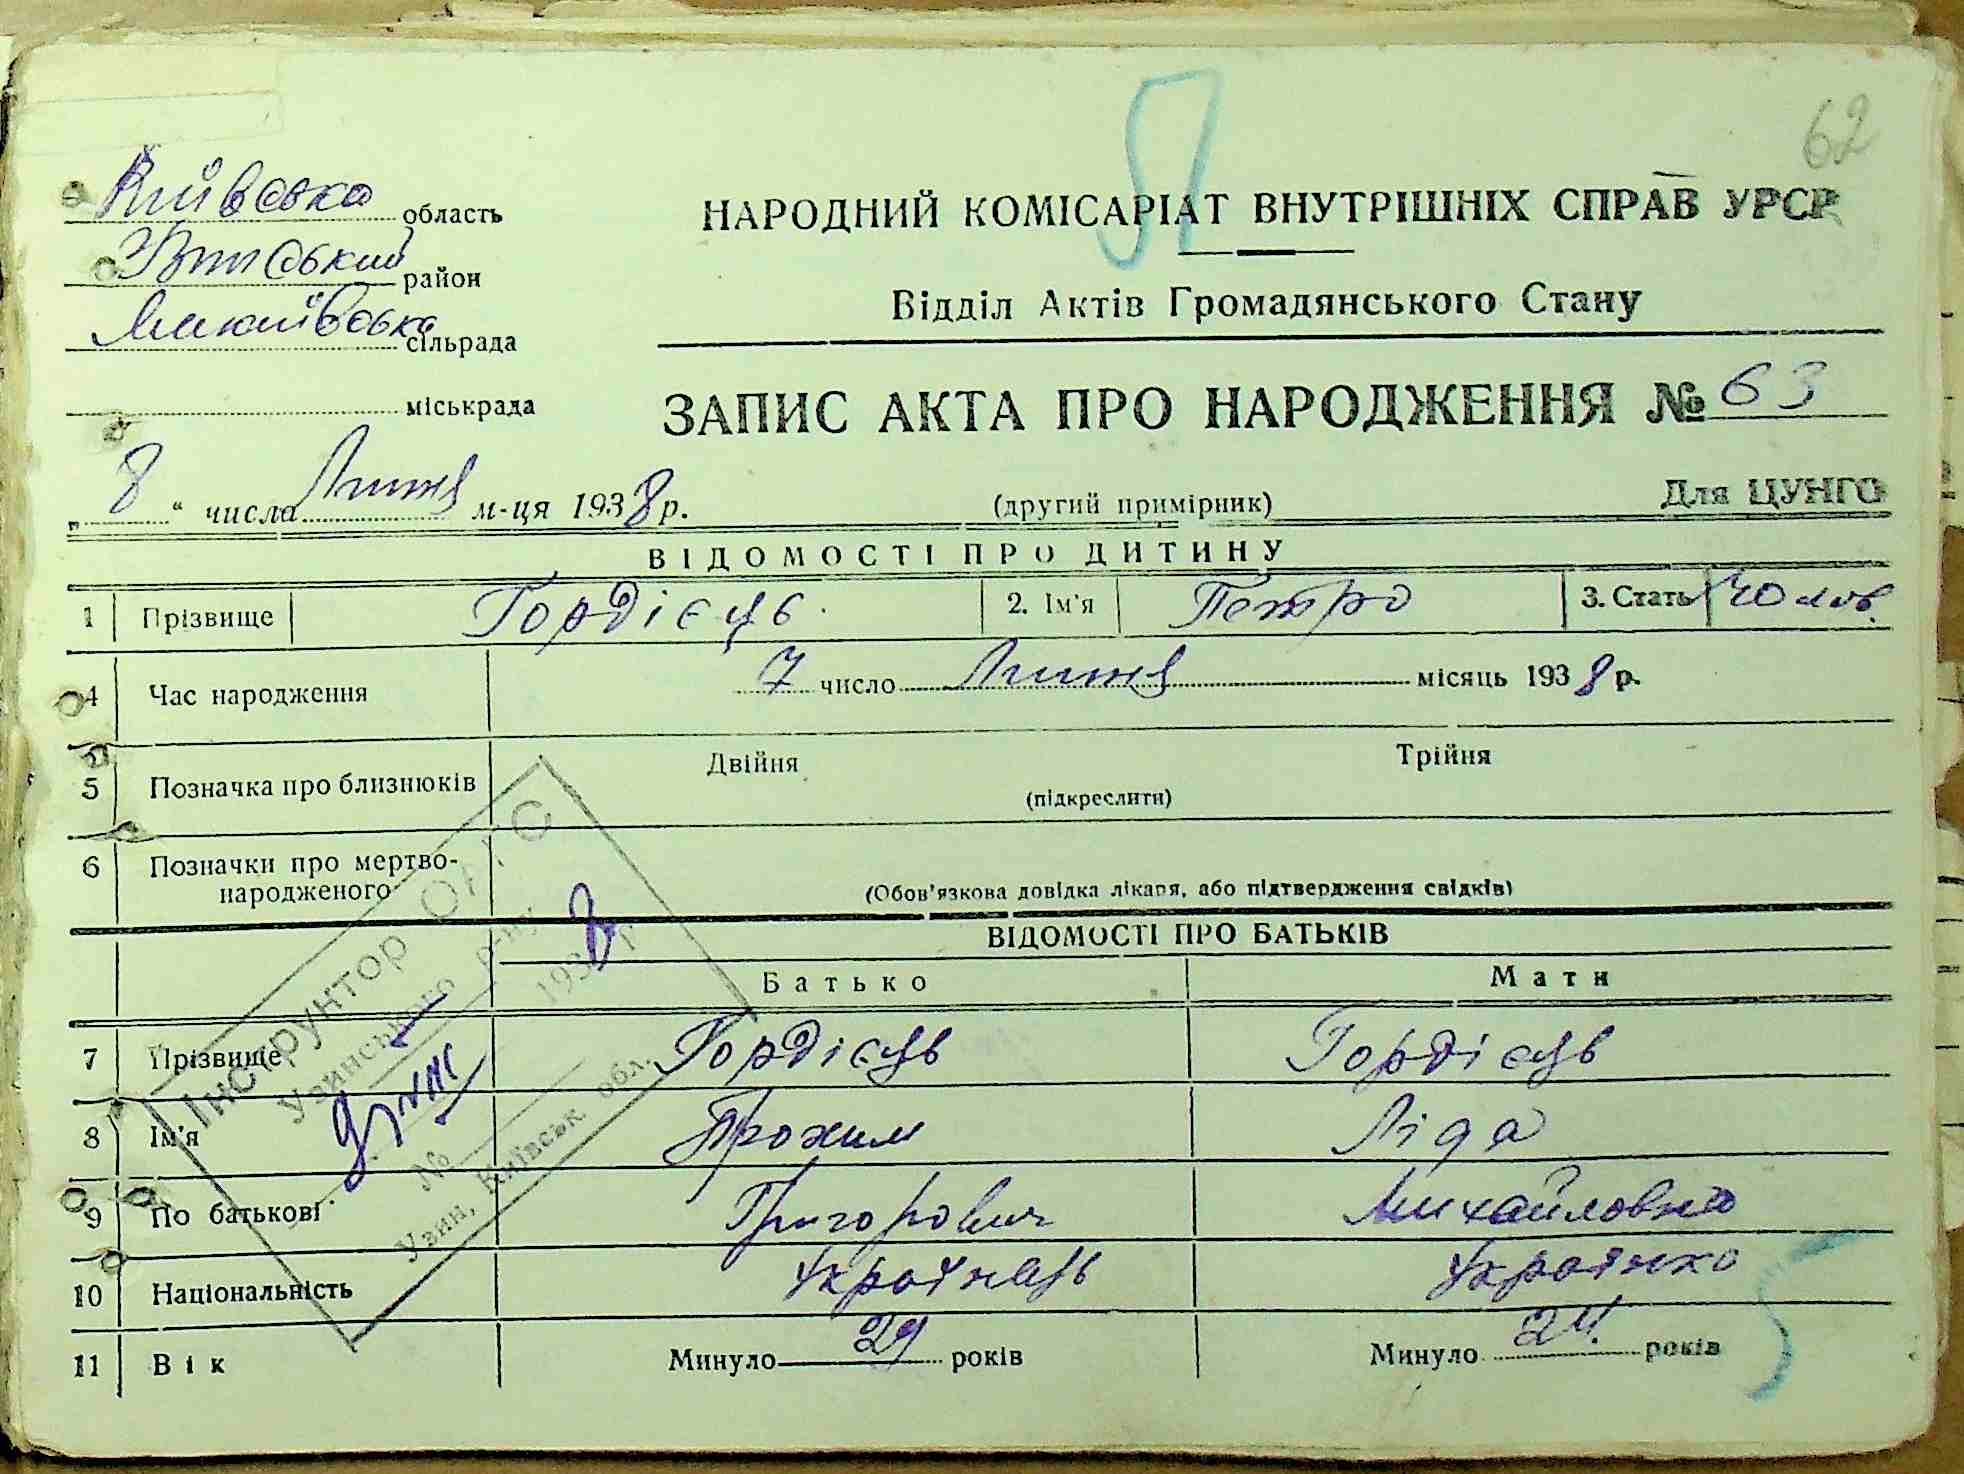 62
Київська область
НАРОДНИЙ КОМІСАРІАТ ВНУТРІШНІХ СПРАВ УРСР
район
Відділ Актів Громадянського Стану
сільрада
міськрада
ЗАПИС АКТА ПРО НАРОДЖЕННЯ № 63
„ 8 “ числа Липня м-ця 1938 р.
(другий примірник)
Для ЦУНГО
ВІДОМОСТІ ПРО ДИТИНУ
1 Прізвище Гордієць 2. Ім'я Петро 3. Стать Чолов.
4 Час народження 7 число Липня місяць 1938 р.
5 Позначка про близнюків Двійня Трійня
(підкреслити)
6 Позначки про мертво-
народженого
(Обов'язкова довідка лікаря, або підтвердження свідків)
ВІДОМОСТІ ПРО БАТЬКІВ
Батько Мати
7 Прізвище Гордієць Гордієць
8 Ім'я Прохим Ліда
9 По батькові Григорович Михайловна
10 Національність Українець Українка
11 Вік Минуло 29 років Минуло 24 років
Інструктор ОАГС
Узинського р-ну
1938 г
№
Узин, Київськ обл.